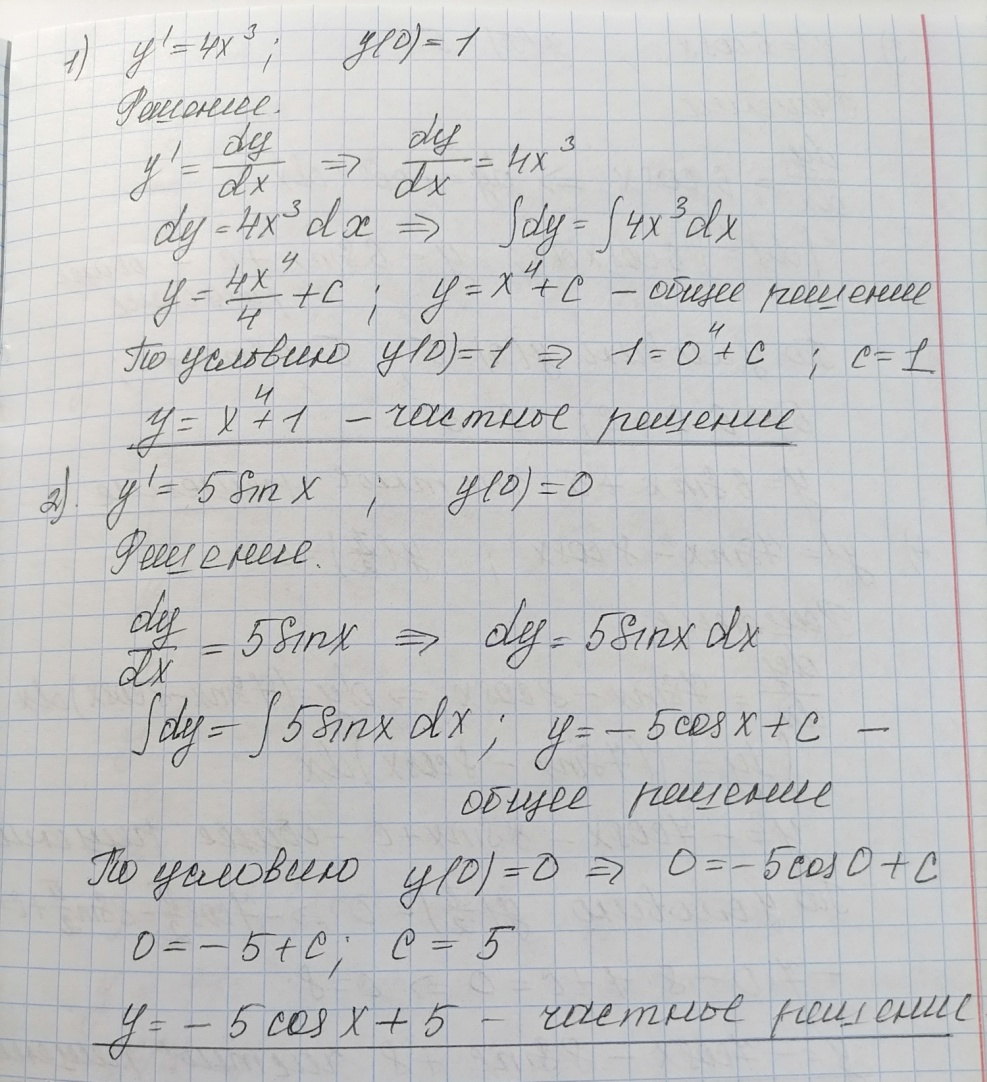 1) y' = 4x³; y(0) = 1
Решение.
y' = dy/dx ⇒ dy/dx = 4x³
dy = 4x³ dx ⇒ ∫dy = ∫4x³dx
y = 4x⁴/4 + c ; y = x⁴ + c – общее решение
По условию y(0) = 1 ⇒ 1 = 0⁴ + c ; c = 1
y = x⁴ + 1 – частное решение
2). y' = 5 sin x ; y(0) = 0
Решение.
dy/dx = 5 sin x ⇒ dy = 5 sin x dx
∫dy = ∫5 sin x dx ; y = – 5 cos x + c –
общее решение
По условию y(0) = 0 ⇒ 0 = – 5 cos 0 + c
0 = – 5 + c; c = 5
y = – 5 cos x + 5 – частное решение